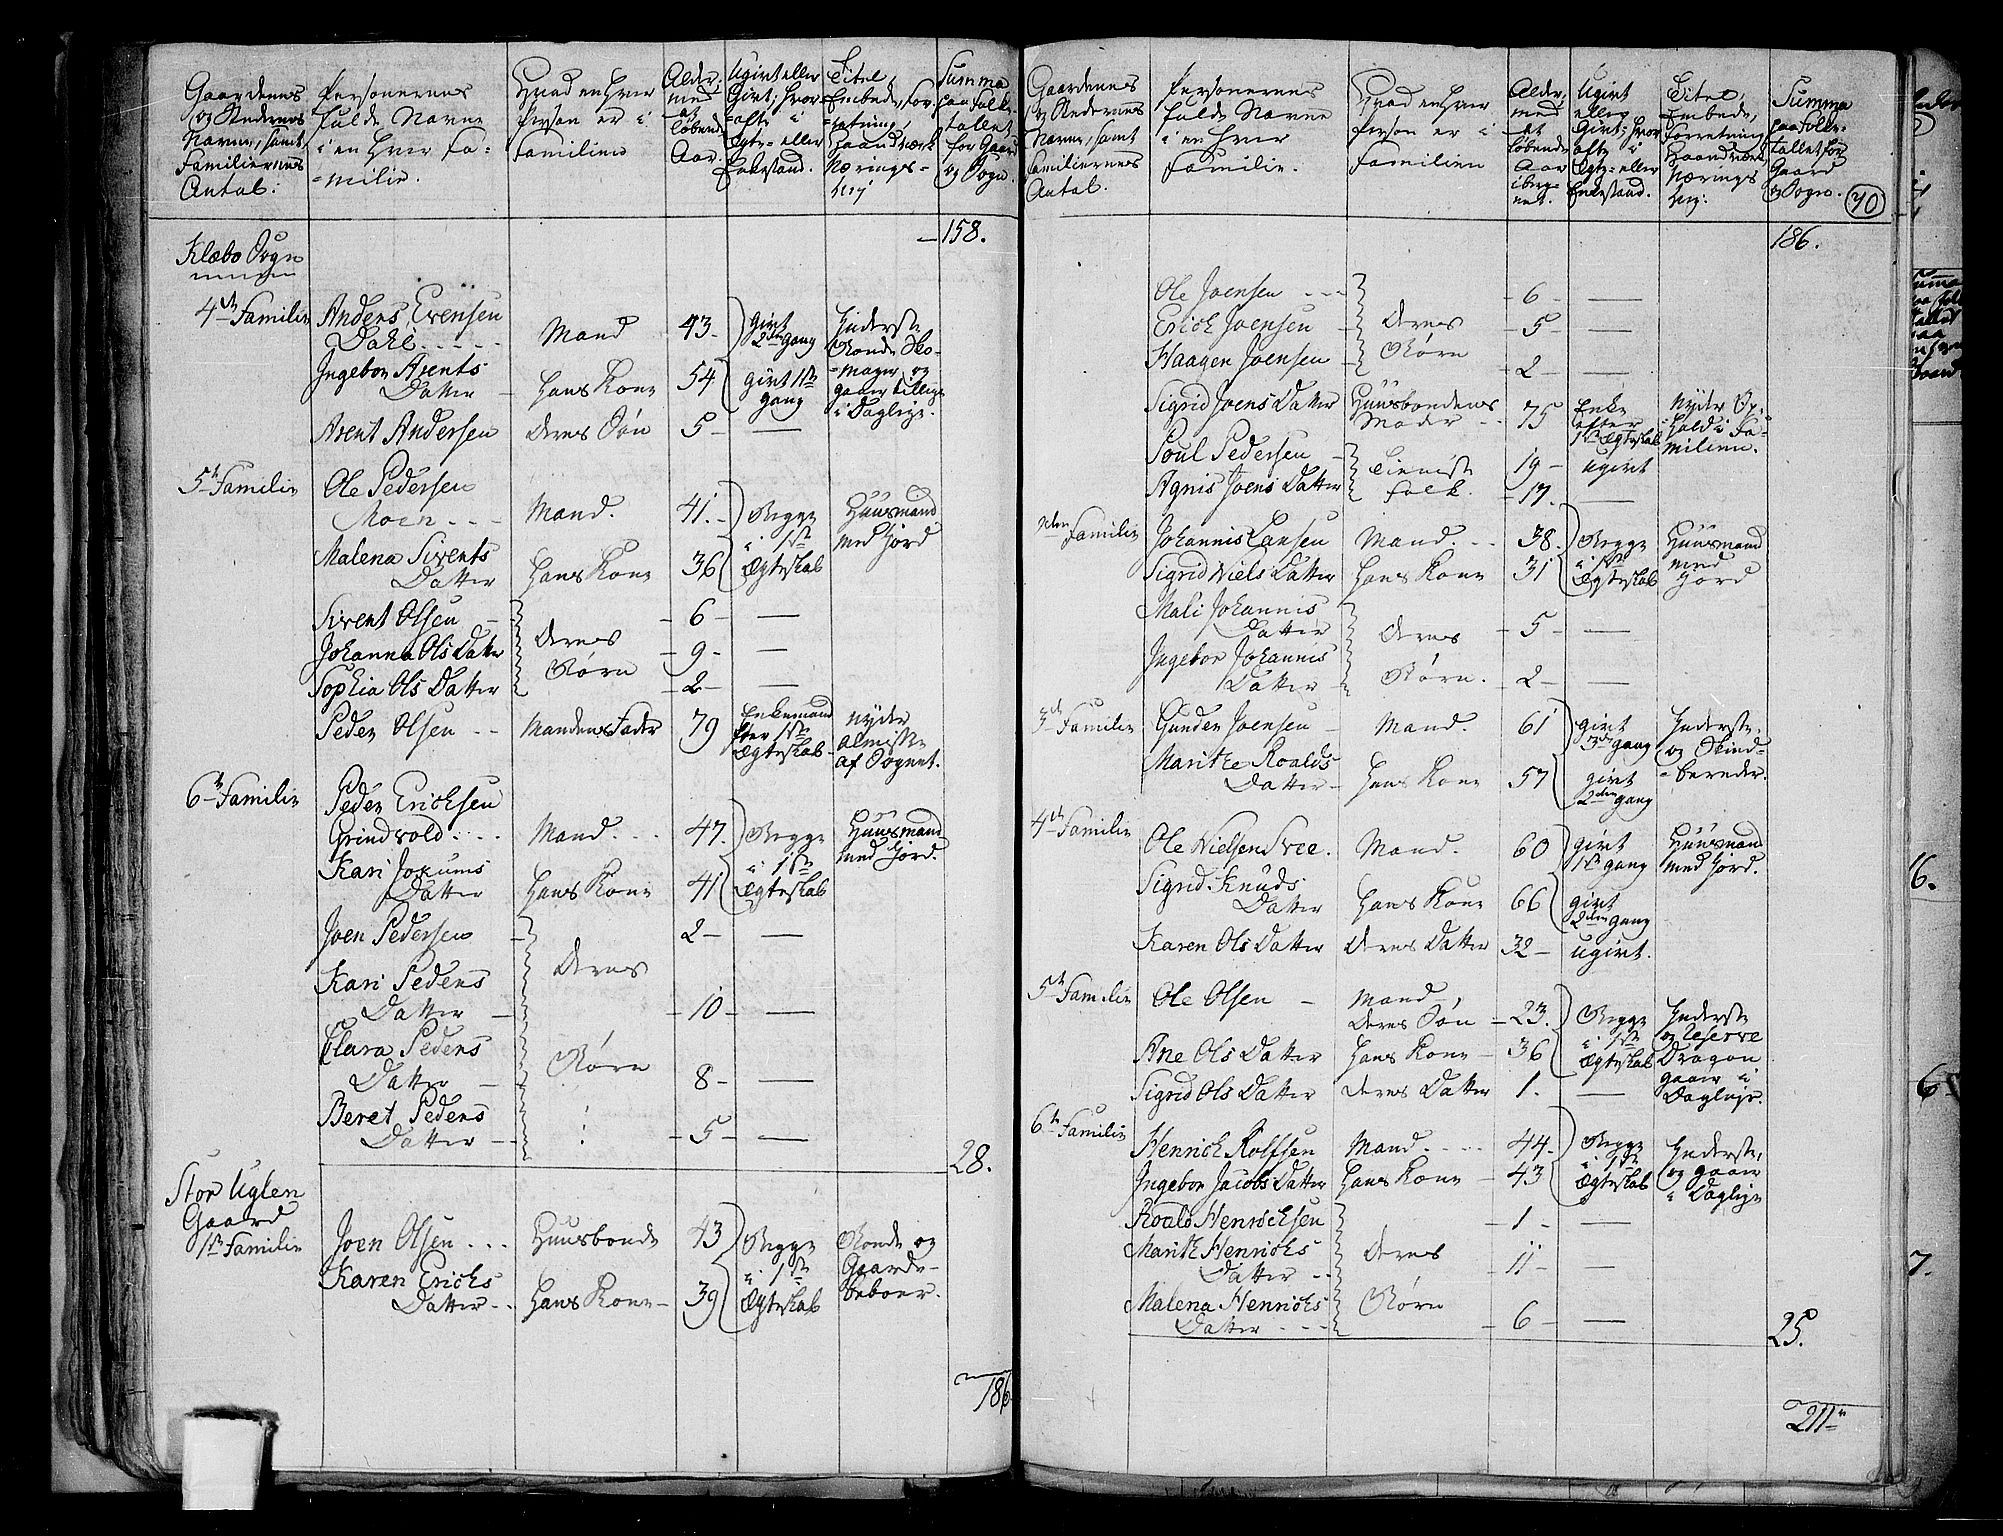 Gaardenes
og Stedernes
Navne, samt
Familiernes
Antal.
Personernes
fulde Navne
i en hver Fa-
milie.
Hvad en hver
Person er i
Familien
Alder,
med
at
løbende
Aar.
Ugivt eller
Givt, hvor
ofte i
Egte- eller
Enkestand.
Titel
Embede, For-
retning,
Haandværk
Nærings-
vej
Summa
paa Folke-
tallet
for Gaard
og Sogn.
158.
Klæbo Sogn
4de Familie
Anders Evensen
Dahl
Mand
43
givt
2den gang
Inderste
Bonde Sko-
mager og
gaaer tillige
i Dagleje.
Ingebor Arents
Datter
Hans Kone
54
givt 1ste
gang
Arent Andersen
Deres Søn
5
5te Familie
Ole Pedersen
Moen
Mand.
41.
Begge
i 1ste
Ægteskab
Huusmand
med Jord
Malena Sivents
Datter
Hans Kone
36
Sivent Olsen
6
Johanna Ols Datter
Deres
Børn
9
Sophia Ols Datter
2
Peder Olsen
Mandens Fader
79
Enkemand
efter 1ste
Ægteskab
Nyder
Almisse
af Sognet.
6te Familie
Peder Erichsen
Grindvold
Mand.
47.
Begge
i 1ste
Ægteskab
Huusmand
med Jord.
Kari Jokums
Datter
Hans Kone
41
Joen Pedersen
2
Kari Peders
Datter
Deres
10
Clara Peders
Datter
Børn
8
Beret Peders
Datter
5
28.
Stor Uglen
Gaard
1ste Familie
Joen Olsen
Huusbonde
43
Begge
i 1ste
Ægteskab
Bonde og
Gaard-
beboer.
Karen Erichs
Datter
Hans Kone
39
186
Gaardenes
og Stedernes
Navne, samt
Familiernes
Antal.
Personernes
fulde Navne
i en hver
Familie.
Hvad en hver
Person er i
Familien
Alder,
med
at
løbende
Aar
ibereg-
net.
Ugivt
eller
Givt, hvor
ofte i
Egte- eller
Enkestand.
Titel,
Embede,
Forretning
Haandværk
Nærings
vej.
Summa
paa Folke-
tallet for
Gaard
og Sogn.
70
186.
Ole Joensen
6
Erich Joensen
Deres
Børn
5
Haagen Joensen
2
Sigrid Joens Datter
Huusbondens
Moder
75
Enke
efter
1ste Ægteskab
Nyder Op-
hold i Fa-
milien.
Poul Pedersen
Tieniste
folk.
19
ugivt
Agnis Joens Datter
17.
2den Familie
Johannis Larsen
Mand
38.
Begge
i 1ste
Ægteskab
Huusmand
med
Jord
Sigrid Niels Datter
Hans Kone
31
Mali Johannis
Datter
Deres
5
Ingebor Johannis
Datter
Børn.
2
3de Familie
Gunder Joensen
Mand.
61
givt
3de gang
Inderste,
og Skind-
bereder.
Maritte Roalds
Datter
Hans Kone
57
givt
2den gang
4de Familie
Ole Nielsen Svee.
Mand.
60
givt
1ste gang
Huusmand
med Jord.
Sigrid Knuds
Datter
Hans Kone
66
givt
2den gang
Karen Ols Datter
Deres Datter
32
ugivt.
5te Familie
Ole Olsen
Mand,
Deres Søn
23.
Begge
i 1ste
Ægteskab
Inderste
og Reserve
Dragon
gaaer i
Dagleje.
Ane Ols Datter
Hans Kone
36
Sigrid Ols Datter
Deres Datter
1.
6te Familie
Henrich Rolfsen
Mand
44.
Begge
i 1ste
Ægteskab
Inderste,
og gaaer
i Dagleje
Ingebor Jacobs Datter
Hans Kone
43
Roald Henrichsen
1
Marith Henrichs
Datter
Deres
11
Malena Henrichs
Datter
Børn
6
25.
211